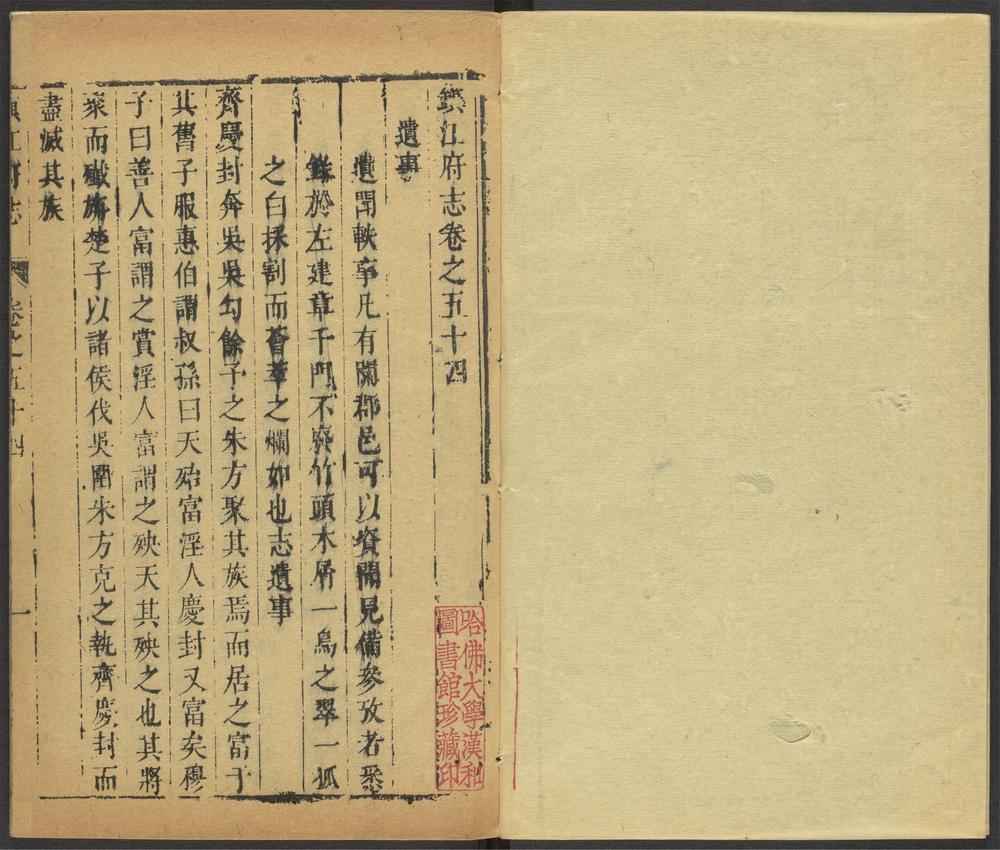 鎮江府志卷之五十四
遺事
遺聞軼事凡有關郡邑可以資聞見備參攷者悉
錄於左建章千門不廢竹頭木屑一鳥之翠一狐
之白採割而薈萃之爛如也志遺事
齊慶封奔吳吳勾餘予之朱方聚其族焉而居之富于
其舊子服惠伯謂叔孫曰天殆富淫人慶封又富矣穆
子曰善人富謂之賞淫人富謂之殃天其殃之也其將
聚而殲旃楚子以諸侯伐吳圍朱方克之執齊慶封而
盡滅其族
鎮江府志
卷之五十四
一
哈佛大學漢和
圖書館珍藏印